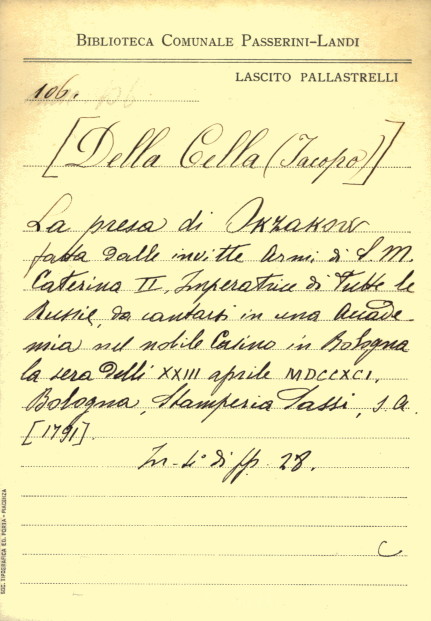 BIBLIOTECA COMUNALE PASSERINI-LANDI
LASCITO PALLASTRELLI
106.
[Della Cella (Jacopo)]
La presa di Okzakow
fatta dalle invitte Armi di S. M.
Caterina II, Imperatrice di Tutte le
Russie, da cantarsi in una Accade-
mia nel nobile Casino in Bologna
la sera delli XXIII aprile MDCCXCI.
Bologna, Stamperia Sassi, s. a.
[1791].
In-4° di pp. 28.
C
SOC. TIPOGRAFICA ED. PORTA - PIACENZA